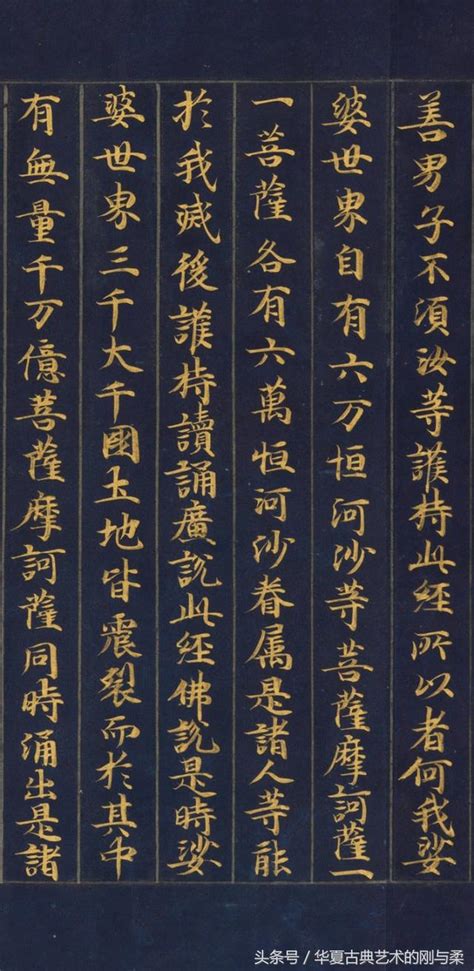 善男子不須汝等護持此経所以者何我娑
婆世界自有六万恒河沙等菩薩摩訶薩一
一菩薩各有六萬恒河沙眷属是諸人等能
於我滅後護持讀誦廣説此経佛説是時娑
婆世界三千大千國土地皆震裂而於其中
有無量千万億菩薩摩訶薩同時涌出是諸
头条号/华夏古典艺术的刚与柔